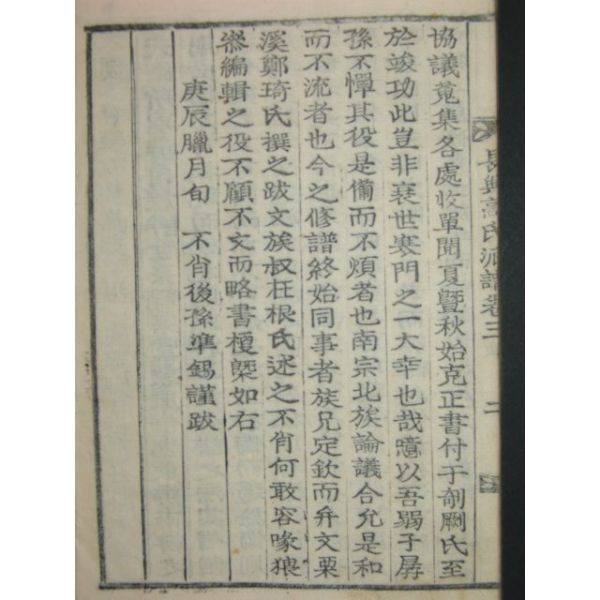 長興高氏派譜卷三
二
協議蒐集各處收單閱夏曁秋始克正書付于剞劂氏至
於竣功此豈非衰世寒門之一大幸也哉噫以吾弱子孱
孫不憚其役是備而不煩者也南宗北族論議合允是和
而不流者也今之修譜終始同事者族兄定欽而弁文栗
溪鄭琦氏撰之跋文族叔在根氏述之不肖何敢容喙猥
忝編輯之役不顧不文而略書梗槩如右
庚辰臘月旬 不肖後孫準錫謹跋